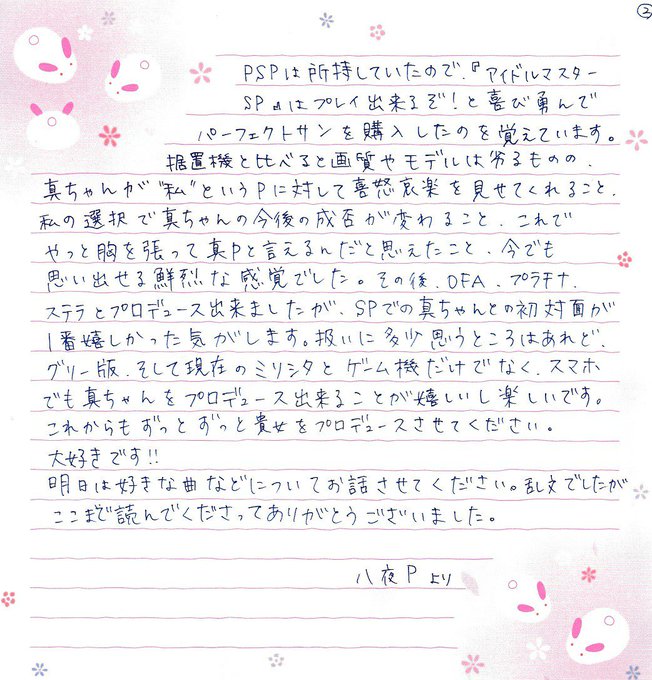 ③
PSPは所持していたので、『アイドルマスター
SP』はプレイ出来るぞ！と喜び勇んで
パーフェクトサンを購入したのを覚えています。
据置機と比べると画質やモデルは劣るものの、
真ちゃんが"私"というPに対して喜怒哀楽を見せてくれること、
私の選択で真ちゃんの今後の成否が変わること、これで
やっと胸を張って真Pと言えるんだと思えたこと、今でも
思い出せる鮮烈な感覚でした。その後、OFA、プラチナ、
ステラとプロデュース出来ましたが、SPでの真ちゃんとの初対面が
1番嬉しかった気がします。扱いに多少思うところはあれど、
グリー版、そして現在のミリシタとゲーム機だけでなく、スマホ
でも真ちゃんをプロデュース出来ることが嬉しいし楽しいです。
これからもずっとずっと貴女をプロデュースさせてください。
大好きです!!
明日は好きな曲などについてお話させてください。乱文でしたが
ここまで読んでくださってありがとうございました。
八夜Pより